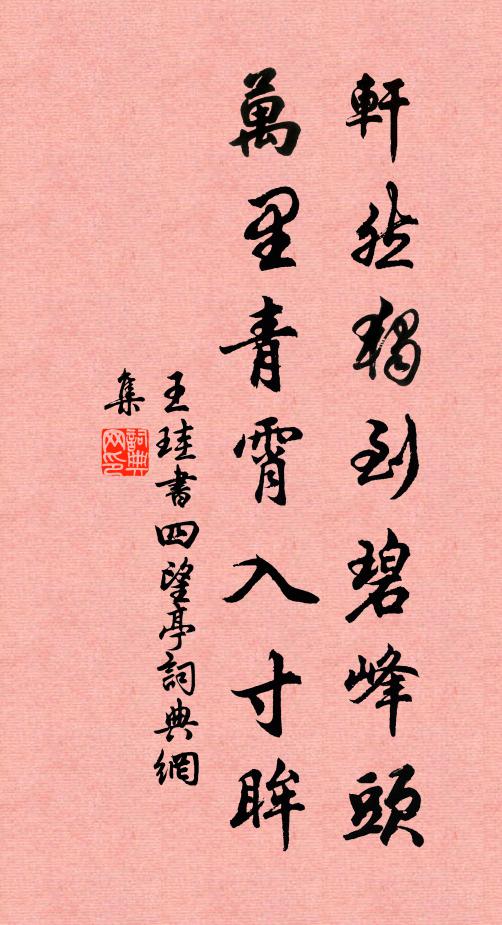 軒然獨到碧峰頭
萬里青霄入寸眸
王珪書四望亭詞典網
集
詞典网印